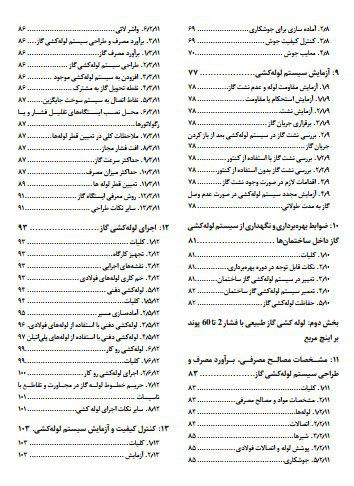 ۲/۸. آماده سازی برای جوشکاری ........ ۶۹
۳/۸. کنترل کیفیت جوش ........ ۶۹
۴/۸. معایب جوش ........ ۷۰
۹: آزمایش سیستم لوله‌کشی ........ ۷۷
۱/۹. کلیات ........ ۷۸
۲/۹. آزمایش مقاومت لوله و عدم نشت گاز ........ ۷۸
۳/۹. آزمایش استحکام یا مقاومت ........ ۷۸
۴/۹. آزمایش نشت ........ ۷۸
۵/۹. برقراری جریان گاز ........ ۷۸
۶/۹. بررسی نشت گاز در سیستم لوله‌کشی بعد از باز کردن
جریان گاز ........ ۷۸
۷/۹. بررسی نشت گاز با استفاده از کنتور ........ ۷۸
۸/۹. بررسی نشت گاز بدون استفاده از کنتور ........ ۷۸
۹/۹. اقدامات لازم در صورت وجود نشت گاز ........ ۷۸
۱۰/۹. آزمایش مجدد سیستم لوله‌کشی در صورت عدم وصل
گاز به مدت طولانی ........ ۷۹
۱۰: ضوابط بهره‌برداری و نگهداری از سیستم لوله‌کشی
گاز داخل ساختمان‌ها ........ ۸۱
۱/۱۰. کلیات ........ ۸۱
۲/۱۰. نکات قابل توجه در دوره بهره‌برداری ........ ۸۱
۳/۱۰. تغییر در سیستم لوله‌کشی گاز ساختمان ........ ۸۱
۴/۱۰. تعمیر سیستم لوله‌کشی گاز ساختمان ........ ۸۲
۵/۱۰. حفاظت لوله‌کشی گاز ........ ۸۲
بخش دوم: لوله کشی گاز طبیعی با فشار 2 تا 60 پوند
بر اینچ مربع
۱۱: مشخصات مصالح مصرفی، برآورد مصرف و
طراحی سیستم لوله‌کشی گاز ........ ۸۳
۱/۱۱. کلیات ........ ۸۳
۲/۱۱. مشخصات مواد و مصالح مصرفی ........ ۸۳
۱/۲/۱۱. لوله‌ها ........ ۸۳
۲/۲/۱۱. اتصالات ........ ۸۴
۳/۲/۱۱. شیرها ........ ۸۵
۴/۲/۱۱. پوشش لوله و اتصالات فولادی ........ ۸۵
۵/۲/۱۱. جوشکاری ........ ۸۵
۶/۲/۱۱. واشر لائی ........ ۸۶
۳/۱۱. برآورد مصرف و طراحی سیستم لوله‌کشی گاز ........ ۸۶
۱/۳/۱۱. برآورد مصرف گاز ........ ۸۶
۲/۳/۱۱. طراحی سیستم لوله‌کشی گاز ........ ۸۶
۳/۳/۱۱. افزودن به سیستم لوله‌کشی موجود ........ ۸۶
۴/۳/۱۱. نقطه تحویل گاز به مشترک ........ ۸۶
۵/۳/۱۱. نقاط اتصال به سیستم سوخت جایگزین ........ ۸۷
۶/۳/۱۱. محل نصب ایستگاه‌های تقلیل فشار و یا
رگولاتورها ........ ۸۷
۷/۳/۱۱. ملاحظات کلی در تعیین قطر لوله‌ها ........ ۸۷
۸/۳/۱۱. افت فشار مجاز ........ ۸۷
۹/۳/۱۱. حداکثر سرعت گاز ........ ۸۷
۱۰/۳/۱۱. حداکثر میزان مصرف ........ ۸۷
۱۱/۳/۱۱. تعیین قطر لوله ها ........ ۸۹
۱۲/۳/۱۱. روش معرفی ایستگاه گاز ........ ۹۱
۱۳/۳/۱۱. سایر نکات طراحی ........ ۹۱
۱۲: اجرای لوله‌کشی گاز ........ ۹۳
۱/۱۲. کلیات ........ ۹۳
۲/۱۲. تجهیز کارگاه ........ ۹۳
۳/۱۲. نقشه‌های اجرایی ........ ۹۳
۴/۱۲. خم کاری لوله‌های فولادی ........ ۹۴
۵/۱۲. لوله‌کشی دفنی ........ ۹۴
۱/۵/۱۲. کلیات ........ ۹۴
۲/۵/۱۲. آماده‌سازی مسیر ........ ۹۵
۳/۵/۱۲. لوله‌کشی دفنی با استفاده از لوله‌های فولادی ۹۶
۴/۵/۱۲. لوله‌کشی دفنی با استفاده از لوله‌های پلی‌اتیلن ۹۷
۶/۱۲. لوله‌کشی رو کار ........ ۹۹
۱/۶/۱۲. کلیات ........ ۹۹
۲/۶/۱۲. اجرای لوله‌کشی رو کار ........ ۱۰۰
۷/۱۲. حریم خطوط لوله گاز در مجاورت و تقاطع با
تاسیسات ........ ۱۰۱
۸/۱۲. سایر نکات اجرای لوله کشی ........ ۱۰۱
۱۳: کنترل کیفیت و آزمایش سیستم لوله‌کشی. ۱۰۳
۱/۱۳. کلیات ........ ۱۰۳
۲/۱۳. آزمایش ........ ۱۰۳